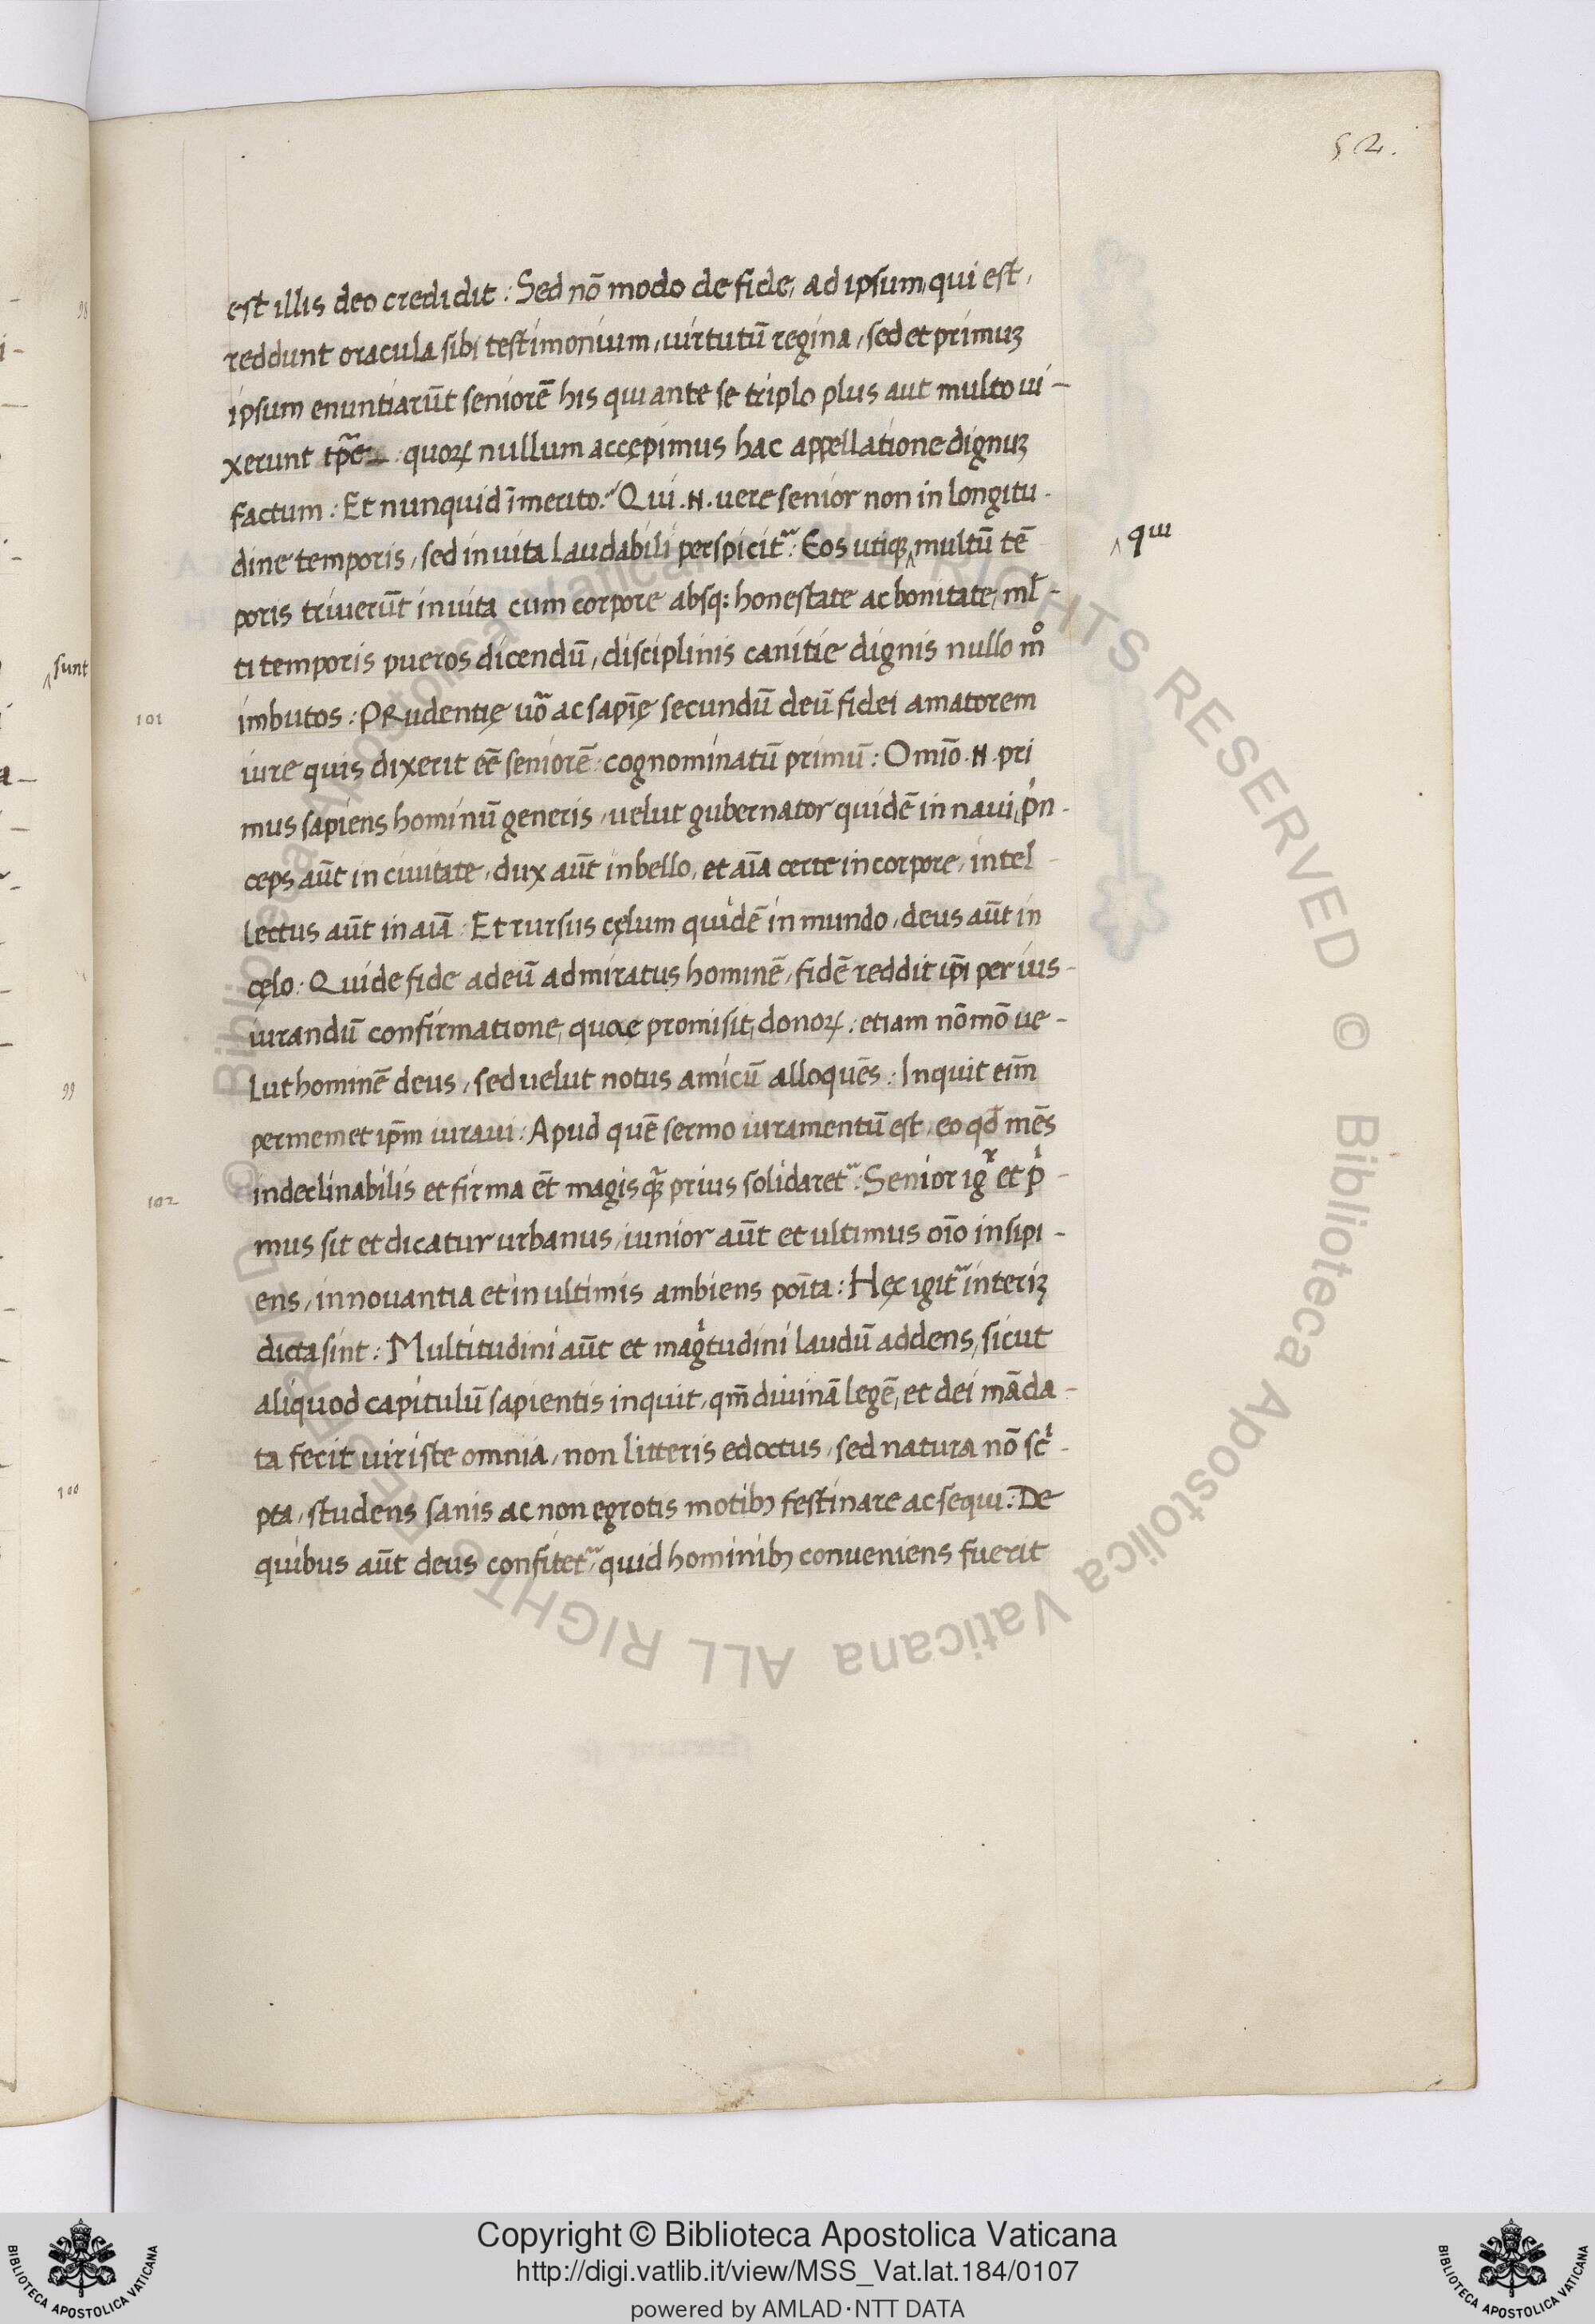 52.
est illis deo credidit : Sed nō modo de fide, ad ipsum, qui est,
reddunt oracula sibi testimonium, uirtutū regina, sed et primuꝫ
ipsum enuntiarūt seniorē his qui ante se triplo plus aut multo ui-
xerunt tp̄e quoꝝ nullum accępimus hac appellatione dignuꝫ
factum : Et nunquid īmerito : Qui .N. uere senior non in longitu-
dine temporis, sed in uita laudabili perspicit᷑ : Eos utiqꝫ ‸ multū tē
‸ qui
poris triuerūt in uita cum corpore absqꝫ honestate ac bonitate, ml̄-
ti temporis pueros dicendū, disciplinis canitie dignis nullo mͦ
101
imbutos : PRudentię uō ac sapīę secundū deū fidei amatorem
iure quis dixerit eē̄ seniorē cognominatū primū : Omīo .N. pri
mus sapiens hominū generis, uelut gubernator quidē in naui, pͥn-
ceps aūt in ciuitate, dux aūt in bello, et aīa certe in corpore, intel-
lectus aūt in aīa : Et rursus cęlum quidē in mundo, deus aūt in
cęlo : Qui de fide ad eū admiratus hominē, fidē reddit ip̄i per ius-
iurandū confirmatione, quae promisit, donoꝝ : etiam nō mō ue-
lut hominē deus, sed uelut notus amicū alloquēs : Inquit eīm
per memet ip̄m iuraui : Apud quē sermo iuramentū est, eo qd̄ mēs
102
indeclinabilis et firma eēt magis qͣꝫ prius solidaret᷑ : Senior igͬ et pͥ-
mus sit et dicatur urbanus, iunior aūt et ultimus oīo insipi-
ens, innouantia et in ultimis ambiens poīta : Hęc igit᷑ interiꝫ
dicta sint : Multitudini aūt et magͥtudini laudū addens, sicut
aliquod capitulū sapientis inquit, qm̄ diuinā legē, et dei māda-
ta fecit uir iste omnia, non litteris edoctus, sed natura nō scͥ-
pta, studens sanis ac non egrotis motibꝫ festinare ac sequi : De
quibus aūt deus confitet᷑, quid hominibꝫ conueniens fuerit
98
‸ sunt
99
100
© Biblioteca Apostolica Vaticana ALL RIGHTS RESERVED
Copyright © Biblioteca Apostolica Vaticana
http://digi.vatlib.it/view/MSS_Vat.lat.184/0107
powered by AMLAD·NTT DATA
BIBLIOTECA APOSTOLICA VATICANA
BIBLIOTECA APOSTOLICA VATICANA